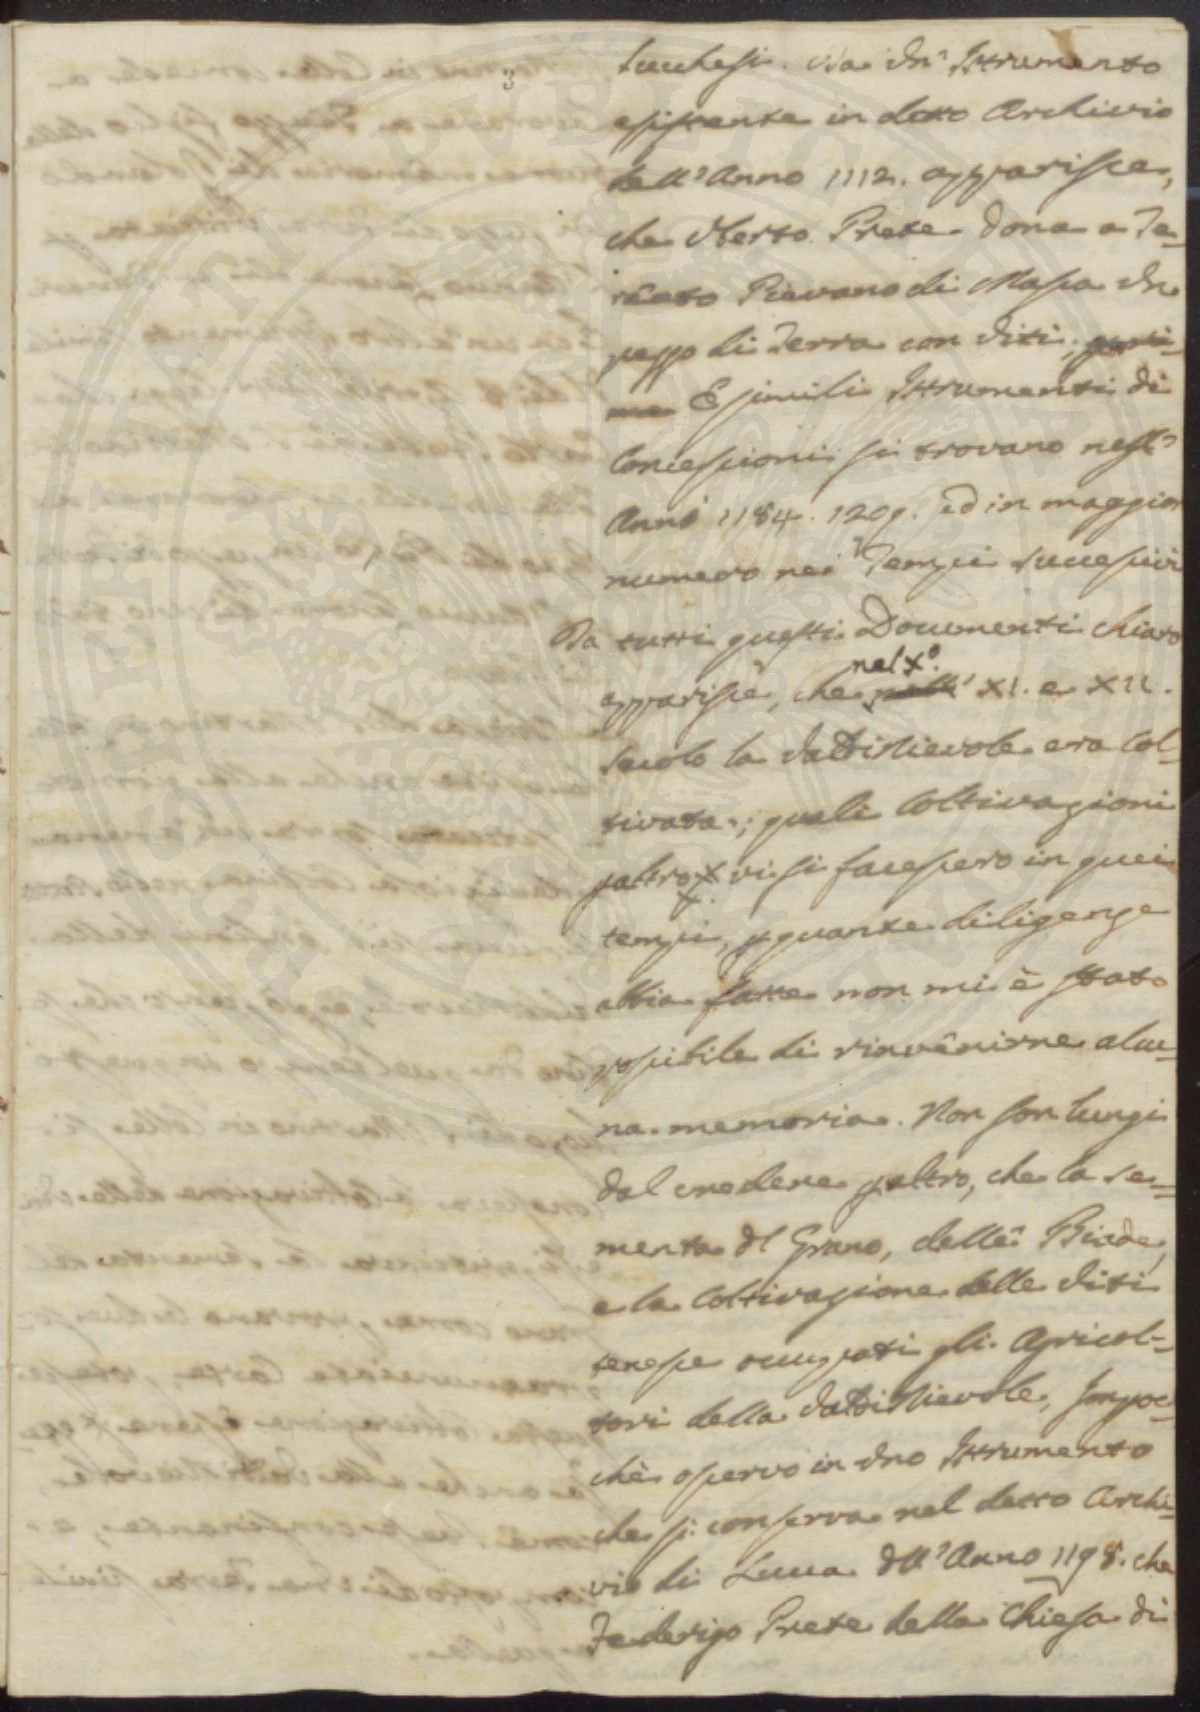 3
Lucchesi. Da un Istrumento
esistente in detto Archivio
dell'Anno 1112. apparisce,
che Uberto Prete dona a Te-
Pievano di Massa un
pezzo di Terra con Viti;
E simili Istrumenti di
Concessioni si trovano nell'
Anno 1184. 1209. ed in maggior
numero nei Tempi successivi
Da tutti questi Documenti chiaro
nel X°.
apparisce, che XI. e XII.
Secolo la Valdinievole era Col-
tivata; quali Coltivazioni
paltro vi si facessero in quei
tempi, p quante diligenze
abbia fatte non mi è stato
possibile di rinvenirne alcu-
na memoria. Non son lungi
dal credere paltro, che la se-
menta dl Grano, delle Biade,
e la Coltivazione delle Viti
tenesse occupati gli Agricol-
tori della Valdinievole, Impoc-
chè osservo in uno Istrumento
che si conserva nel detto Archi-
vio di Lucca dll'Anno 1198. che
Federigo Prete della Chiesa di